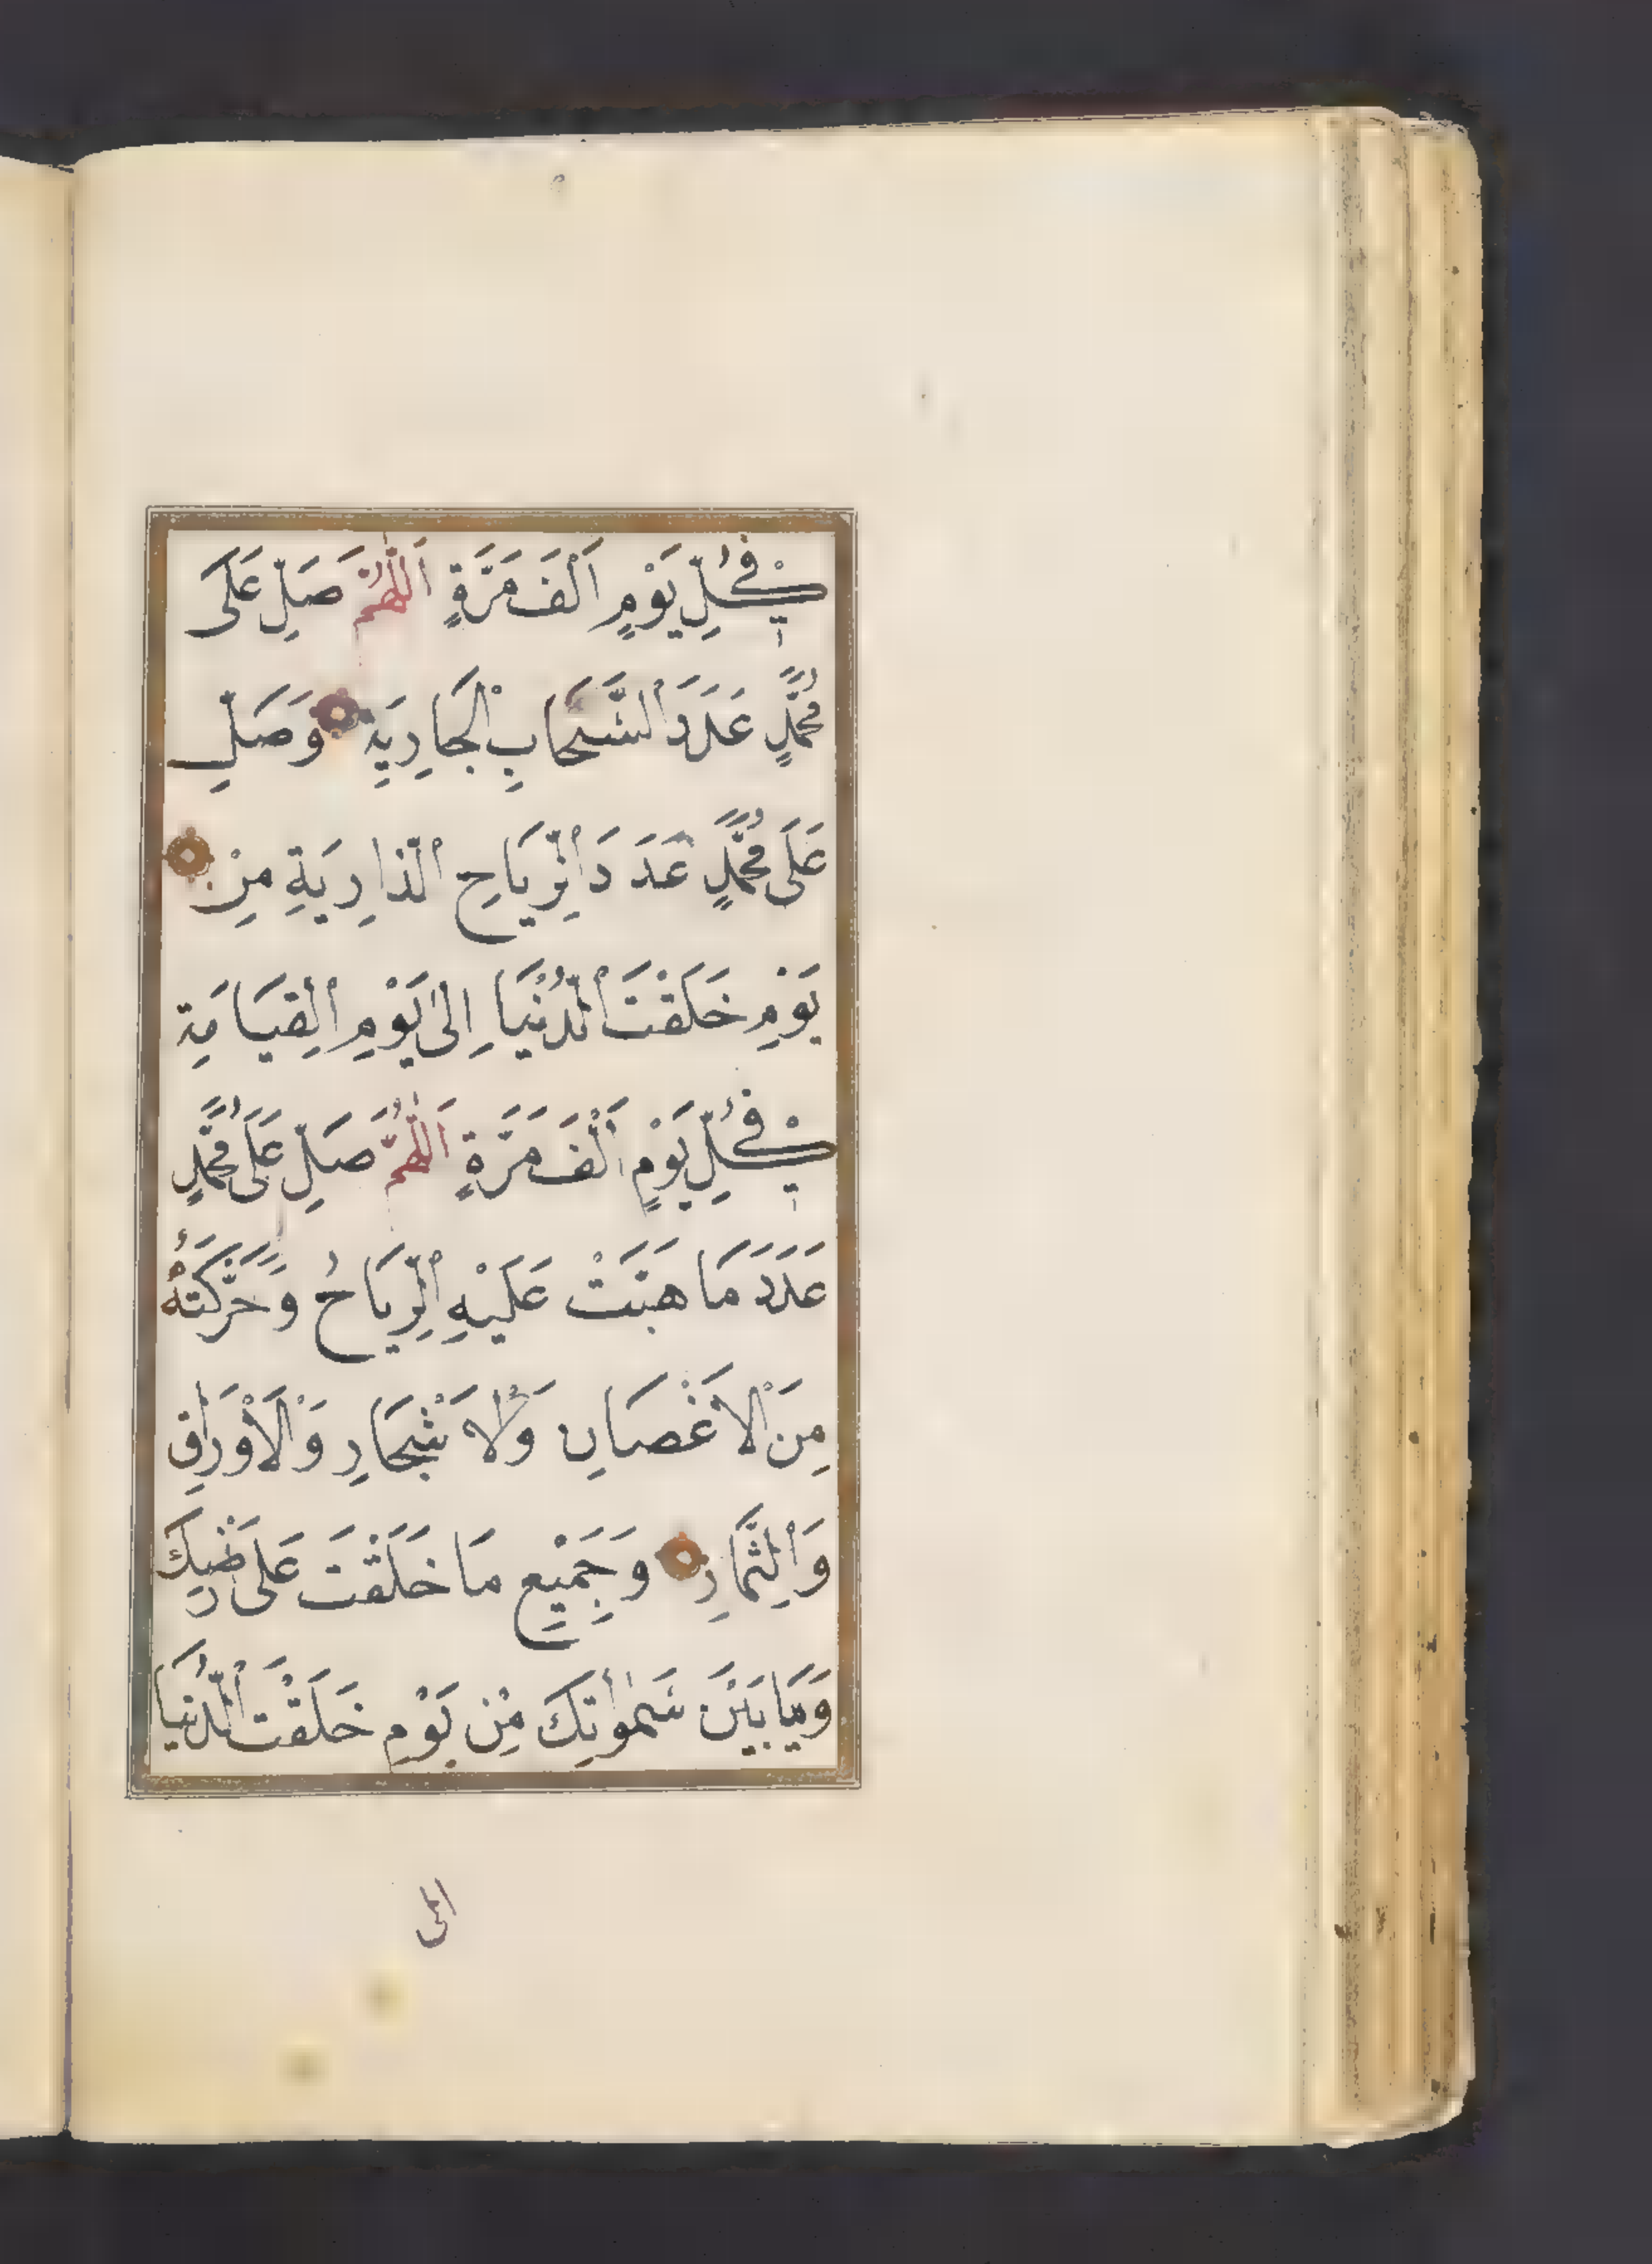 فِي كُلِّ يَوْمٍ اَلْفَ مَرَّةٍ اَللّٰهُمَّ صَلِّ عَلَى
مُحَمَّدٍ عَدَدَ السَّحَابِ الْجَارِيَةِ وَصَلِّ
عَلَى مُحَمَّدٍ عَدَدَ الرِّيَاحِ الذَّارِيَةِ مِنْ
يَوْمِ خَلَقْتَ الدُّنْيَا اِلٰى يَوْمِ الْقِيَامَةِ
فِي كُلِّ يَوْمٍ اَلْفَ مَرَّةٍ اَللّٰهُمَّ صَلِّ عَلَى مُحَمَّدٍ
عَدَدَ مَا هَبَّتْ عَلَيْهِ الرِّيَاحُ وَحَرَّكَتْهُ
مِنَ الْاَغْصَانِ وَالْاَشْجَارِ وَالْاَوْرَاقِ
وَالثِّمَارِ وَجَمِيْعِ مَا خَلَقْتَ عَلَى اَرْضِكَ
وَمَا بَيْنَ سَمٰوَاتِكَ مِنْ يَوْمِ خَلَقْتَ الدُّنْيَا
الى